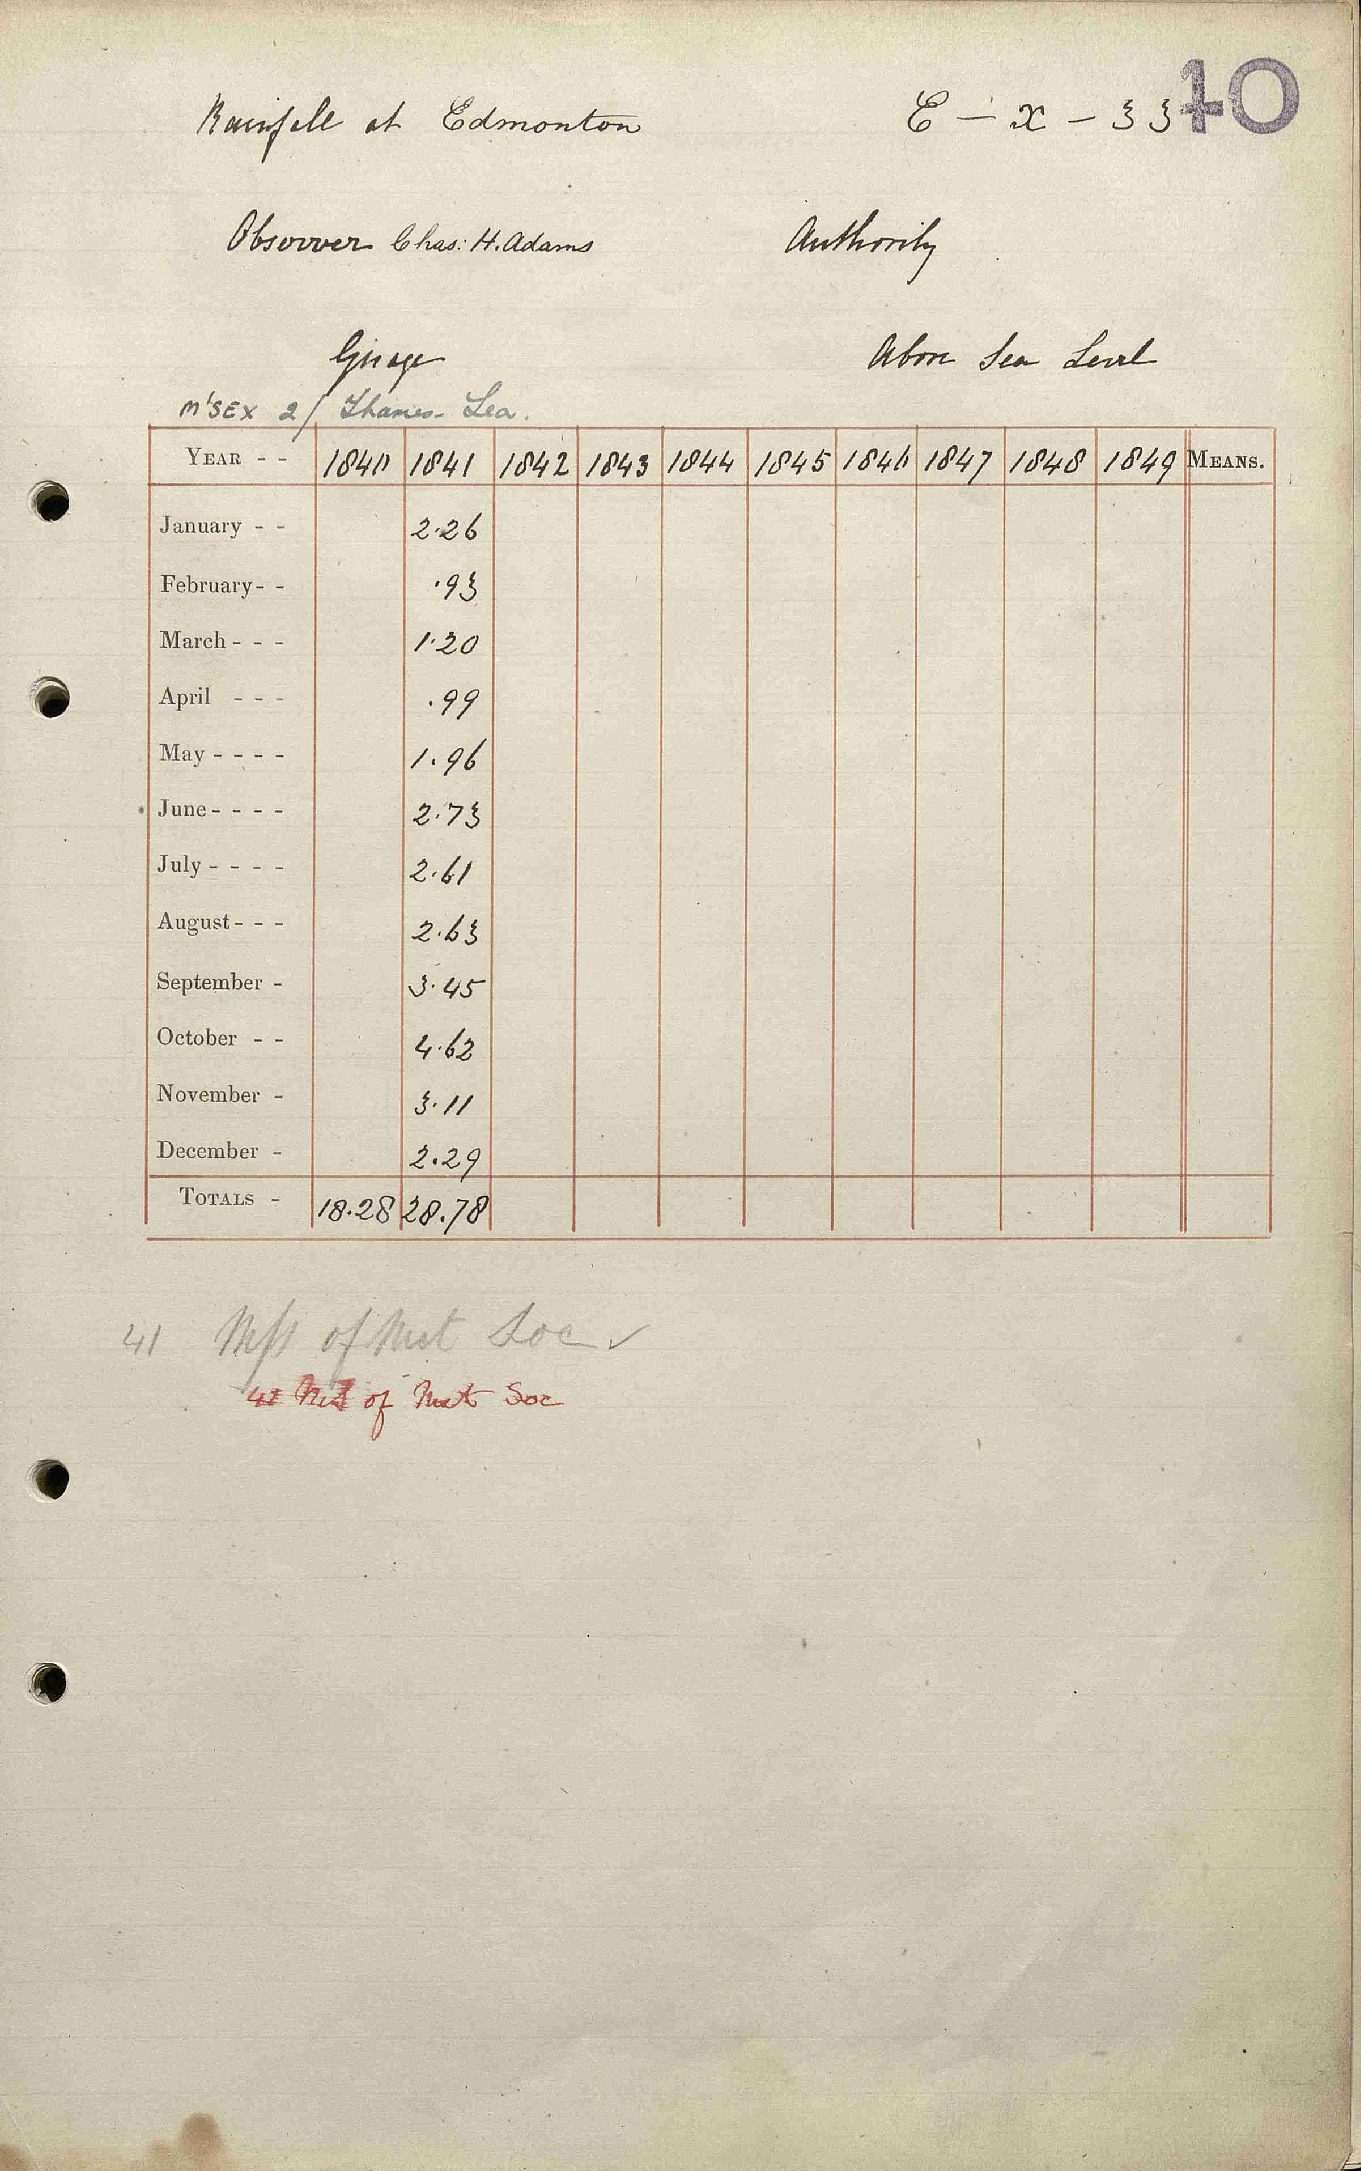 Rainfall at Edmonton E - x - 33 40
Observer Chas: H. Adams Authority
Guage Above Sea Level
M'SEX 2/ Thames - Lea.
YEAR - - 1840 1841 1842 1843 1844 1845 1846 1847 1848 1849 MEANS.
January - - 2.26
February - - .93
March - - - 1.20
April - - - .99
May - - - - 1.96
June - - - - 2.73
July - - - - 2.61
August - - - 2.63
September - 3.45
October - - 4.62
November - 3.11
December - 2.29
TOTALS - 18.28 28.78
41 Mss of Met Soc ✓
41 of Met Soc